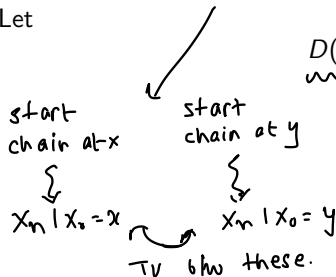 Let
D(
start chain at x
start chain at y
Xn | X0 = x
Xn | X0 = y
TV b/w these.